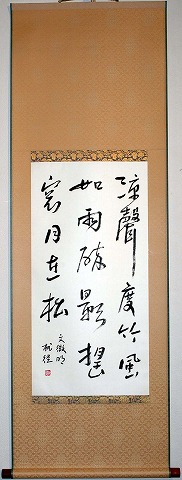 涼聲度竹風
如雨碎影搖
窓月在松
文徴明